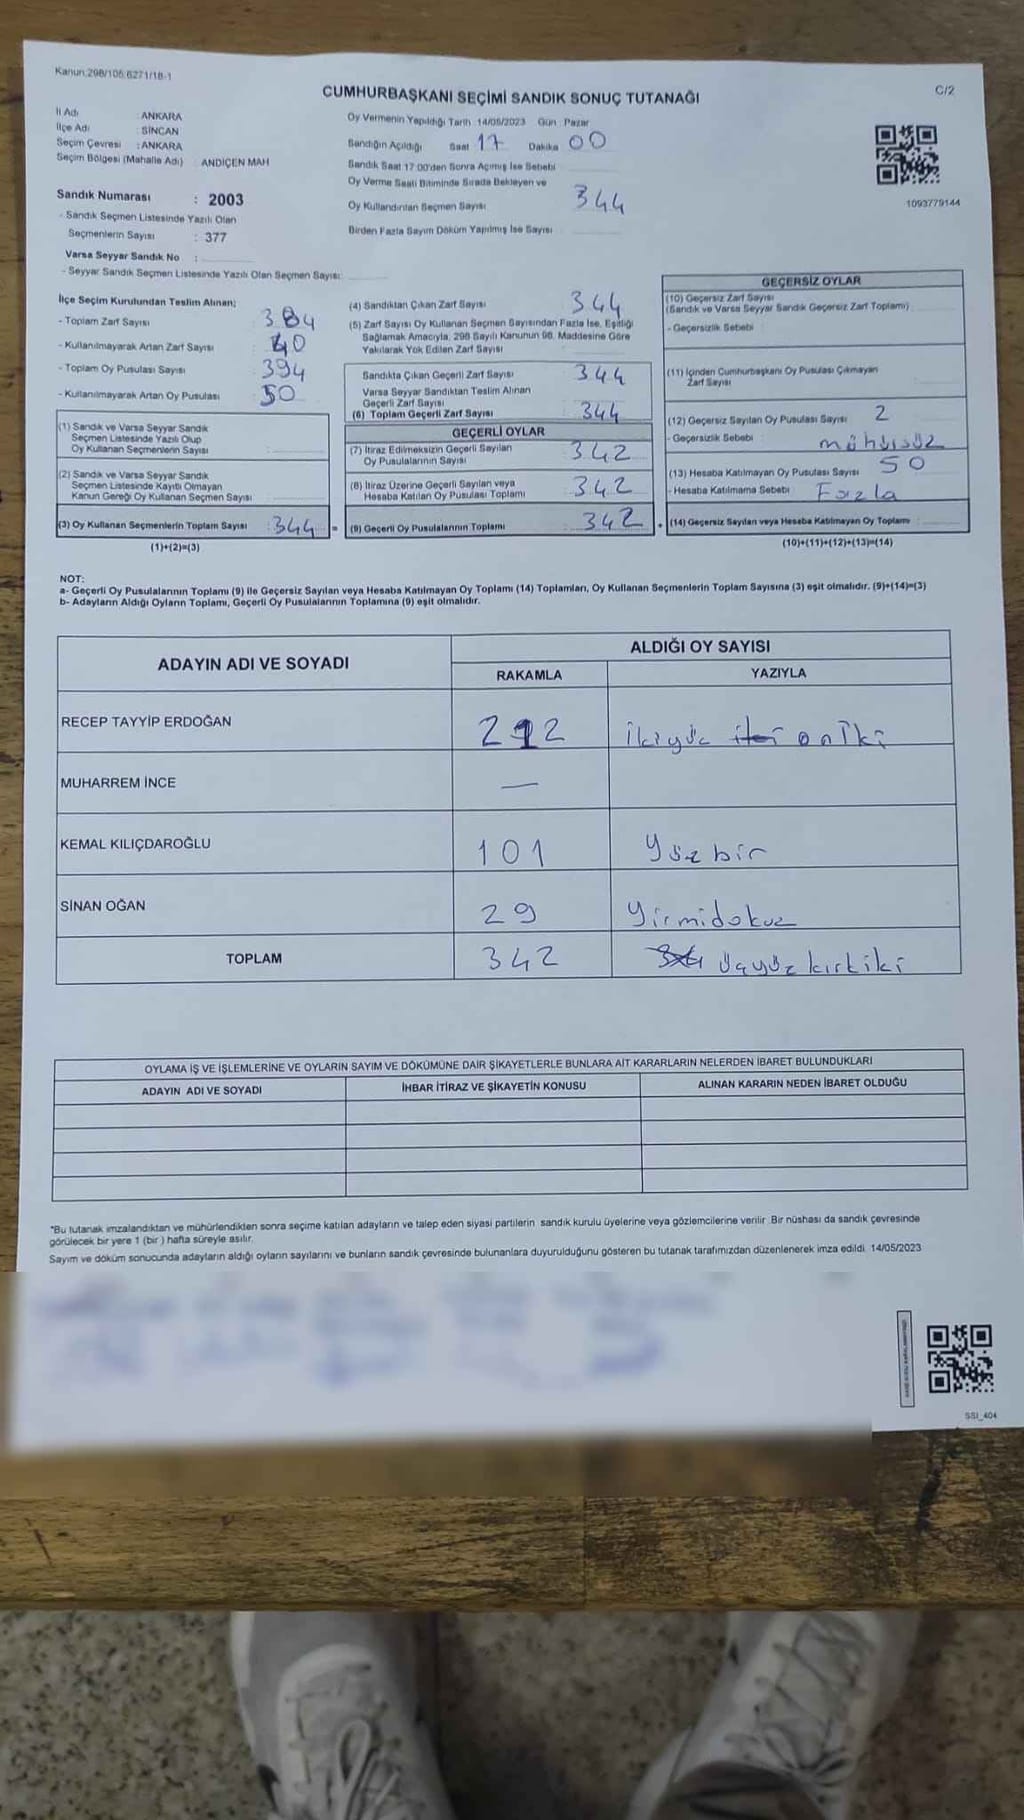 Kanun:298/105;6271/18-1
C/2
CUMHURBAŞKANI SEÇİMİ SANDIK SONUÇ TUTANAĞI
İl Adı : ANKARA
İlçe Adı : SİNCAN
Seçim Çevresi : ANKARA
Seçim Bölgesi (Mahalle Adı) : ANDİÇEN MAH
Sandık Numarası : 2003
- Sandık Seçmen Listesinde Yazılı Olan
Seçmenlerin Sayısı : 377
Varsa Seyyar Sandık No :
- Seyyar Sandık Seçmen Listesinde Yazılı Olan Seçmen Sayısı:
Oy Vermenin Yapıldığı Tarih 14/05/2023 Gün Pazar
Sandığın Açıldığı Saat 17 Dakika 00
Sandık Saat 17:00'den Sonra Açımış İse Sebebi
Oy Verme Saati Bitiminde Sırada Bekleyen ve
Oy Kullandırılan Seçmen Sayısı 344
Birden Fazla Sayım Döküm Yapılmış İse Sayısı
1093779144
İlçe Seçim Kurulundan Teslim Alınan;
- Toplam Zarf Sayısı 384
- Kullanılmayarak Artan Zarf Sayısı 40
- Toplam Oy Pusulası Sayısı 394
- Kullanılmayarak Artan Oy Pusulası 50
(1) Sandık ve Varsa Seyyar Sandık
Seçmen Listesinde Yazılı Olup
Oy Kullanan Seçmenlerin Sayısı
(2) Sandık ve Varsa Seyyar Sandık
Seçmen Listesinde Kayıtlı Olmayan
Kanun Gereği Oy Kullanan Seçmen Sayısı
(3) Oy Kullanan Seçmenlerin Toplam Sayısı : 344
(1)+(2)=(3)
(4) Sandıktan Çıkan Zarf Sayısı 344
(5) Zarf Sayısı Oy Kullanan Seçmen Sayısından Fazla İse, Eşitliği
Sağlamak Amacıyla, 298 Sayılı Kanunun 98. Maddesine Göre
Yakılarak Yok Edilen Zarf Sayısı
Sandıkta Çıkan Geçerli Zarf Sayısı 344
Varsa Seyyar Sandıktan Teslim Alınan
Geçerli Zarf Sayısı
(6) Toplam Geçerli Zarf Sayısı 344
GEÇERLİ OYLAR
(7) İtiraz Edilmeksizin Geçerli Sayılan
Oy Pusulalarının Sayısı 342
(8) İtiraz Üzerine Geçerli Sayılan veya
Hesaba Katılan Oy Pusulası Toplamı 342
(9) Geçerli Oy Pusulalarının Toplamı 342
GEÇERSİZ OYLAR
(10) Geçersiz Zarf Sayısı
(Sandık ve Varsa Seyyar Sandık Geçersiz Zarf Toplamı)
- Geçersizlik Sebebi :
(11) İçinden Cumhurbaşkanı Oy Pusulası Çıkmayan
Zarf Sayısı
(12) Geçersiz Sayılan Oy Pusulası Sayısı 2
- Geçersizlik Sebebi : mühürsüz
(13) Hesaba Katılmayan Oy Pusulası Sayısı 50
- Hesaba Katılmama Sebebi : Fazla
(14) Geçersiz Sayılan veya Hesaba Katılmayan Oy Toplamı
(10)+(11)+(12)+(13)=(14)
NOT:
a- Geçerli Oy Pusulalarının Toplamı (9) ile Geçersiz Sayılan veya Hesaba Katılmayan Oy Toplamı (14) Toplamları, Oy Kullanan Seçmenlerin Toplam Sayısına (3) eşit olmalıdır. (9)+(14)=(3)
b- Adayların Aldığı Oyların Toplamı, Geçerli Oy Pusulalarının Toplamına (9) eşit olmalıdır.
ADAYIN ADI VE SOYADI ALDIĞI OY SAYISI
RAKAMLA YAZIYLA
RECEP TAYYİP ERDOĞAN 212 ikiyüz iki oniki
MUHARREM İNCE —
KEMAL KILIÇDAROĞLU 101 Yüz bir
SİNAN OĞAN 29 Yirmidokuz
TOPLAM 342 üçyüz kırkiki
OYLAMA İŞ VE İŞLEMLERİNE VE OYLARIN SAYIM VE DÖKÜMÜNE DAİR ŞİKAYETLERLE BUNLARA AİT KARARLARIN NELERDEN İBARET BULUNDUKLARI
ADAYIN ADI VE SOYADI İHBAR İTİRAZ VE ŞİKAYETİN KONUSU ALINAN KARARIN NEDEN İBARET OLDUĞU
*Bu tutanak imzalandıktan ve mühürlendikten sonra seçime katılan adayların ve talep eden siyasi partilerin sandık kurulu üyelerine veya gözlemcilerine verilir. Bir nüshası da sandık çevresinde
görülecek bir yere 1 (bir ) hafta süreyle asılır.
Sayım ve döküm sonucunda adayların aldığı oyların sayılarını ve bunların sandık çevresinde bulunanlara duyurulduğunu gösteren bu tutanak tarafımızdan düzenlenerek imza edildi. 14/05/2023
SSI_404